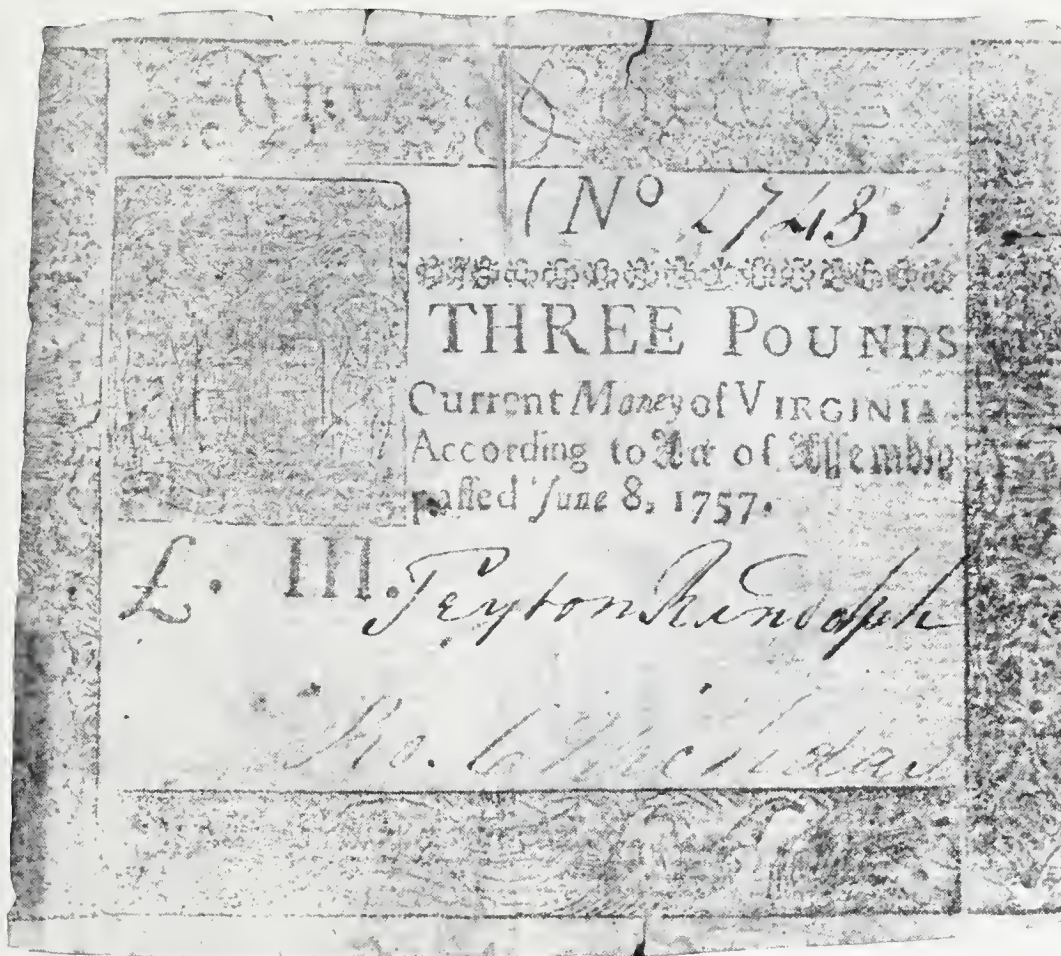 (No 2743)
THREE POUNDS
Current Money of VIRGINIA
According to Act of Assembly
passed June 8, 1757.
£. III. Peyton Randolph
Ro. C. Nicholas